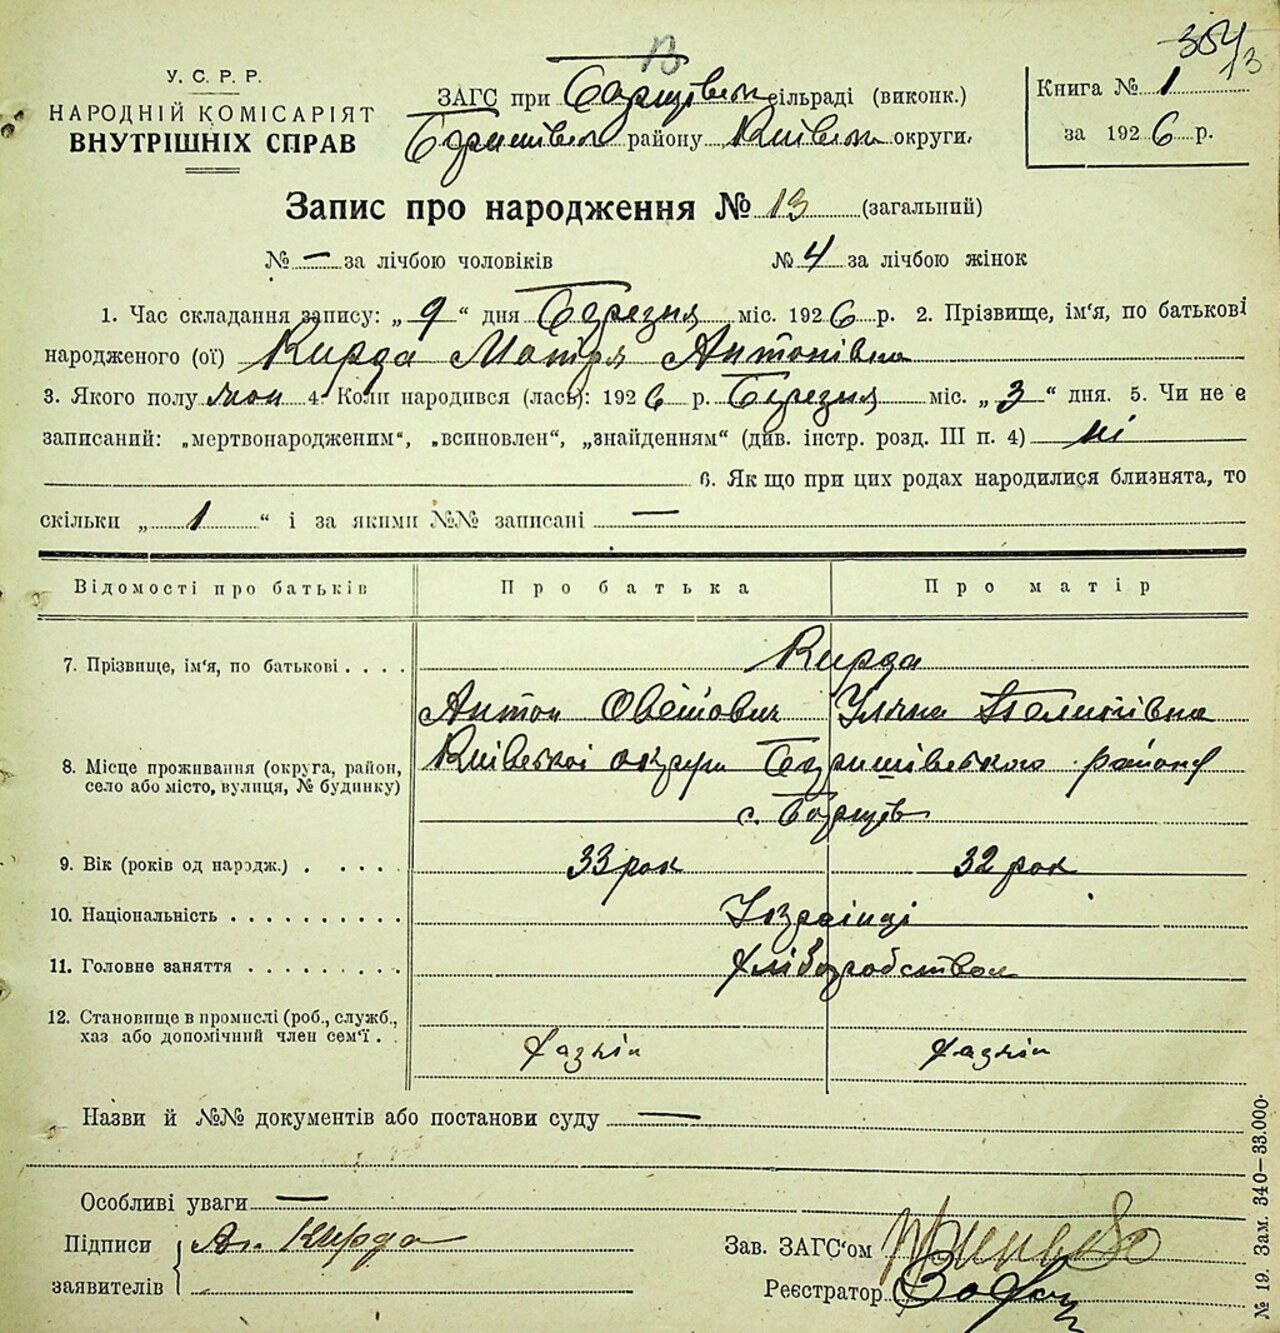 354
13
У. С. Р. Р.
НАРОДНІЙ КОМІСАРІЯТ
ВНУТРІШНІХ СПРАВ
ЗАГС при Борщівск сільраді (виконк.)
Баришівськ району Київськ округи.
Книга № 1
за 1926 р.
Запис про народження № 13 (загальний)
№ — за лічбою чоловіків № 4 за лічбою жінок
1. Час складання запису: „ 9 “ дня Березня міс. 1926 р. 2. Прізвище, ім'я, по батькові
народженого (ої) Кирда Мотря Антонівна
3. Якого полу жон 4. Коли народився (лась): 1926 р. Березня міс. „ 3 “ дня. 5. Чи не є
записаний: „мертвонародженим“, „всиновлен“, „знайденням“ (див. інстр. розд. III п. 4) ні
6. Як що при цих родах народилися близнята, то
скільки „ 1 “ і за якими №№ записані —
Відомості про батьків Про батька Про матір
7. Прізвище, ім'я, по батькові . . . . Кирда
Антон Уляна
8. Місце проживання (округа, район,
село або місто, вулиця, № будинку)
Київської округи Баришівського району
с. Борщів
9. Вік (років од народж.) . . . . . 33 рок 32 рок
10. Національність . . . . . . . . . . Українці
11. Головне заняття . . . . . . . . . Хліборобством
12. Становище в промислі (роб., служб.,
хаз або допомічний член сем'ї . .
Хазяін Хазяін
Назви й №№ документів або постанови суду —
Особливі уваги —
Підписи
заявителів
Ан. Кирда
Зав. ЗАГС'ом
Реєстратор
№ 19. Зам. 340—33.000.